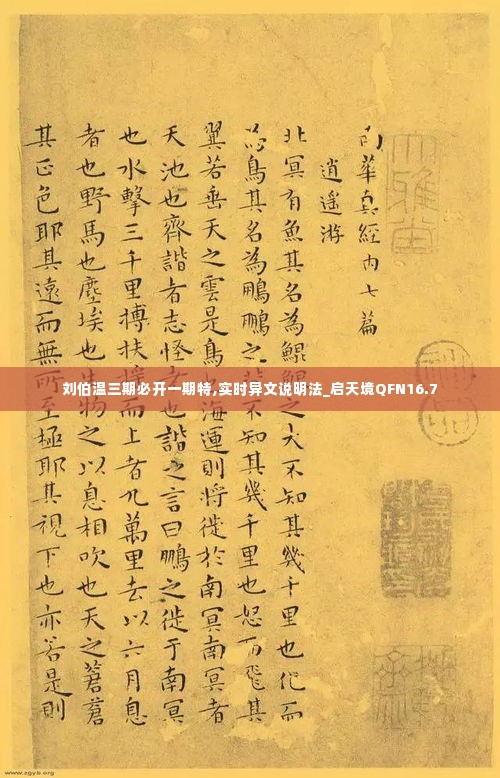 南華真經内七篇
逍遙游
北冥有魚其名為鯤鯤之大不知其幾千里也化而
為鳥其名為鵬鵬之不知其幾千里也怒而飛其
翼若垂天之雲是鳥海運則將徙於南冥南冥者
天池也齊諧者志怪也諧之言曰鵬之徙于南冥
也水擊三千里摶扶而上者九萬里去以六月息
者也野馬也塵埃也物之以息相吹也天之蒼蒼
其正色耶其遠而無所至極耶其視下也亦若是則
刘伯温三期必开一期特,实时异文说明法_启天境QFN16.7
www.zgyb.org